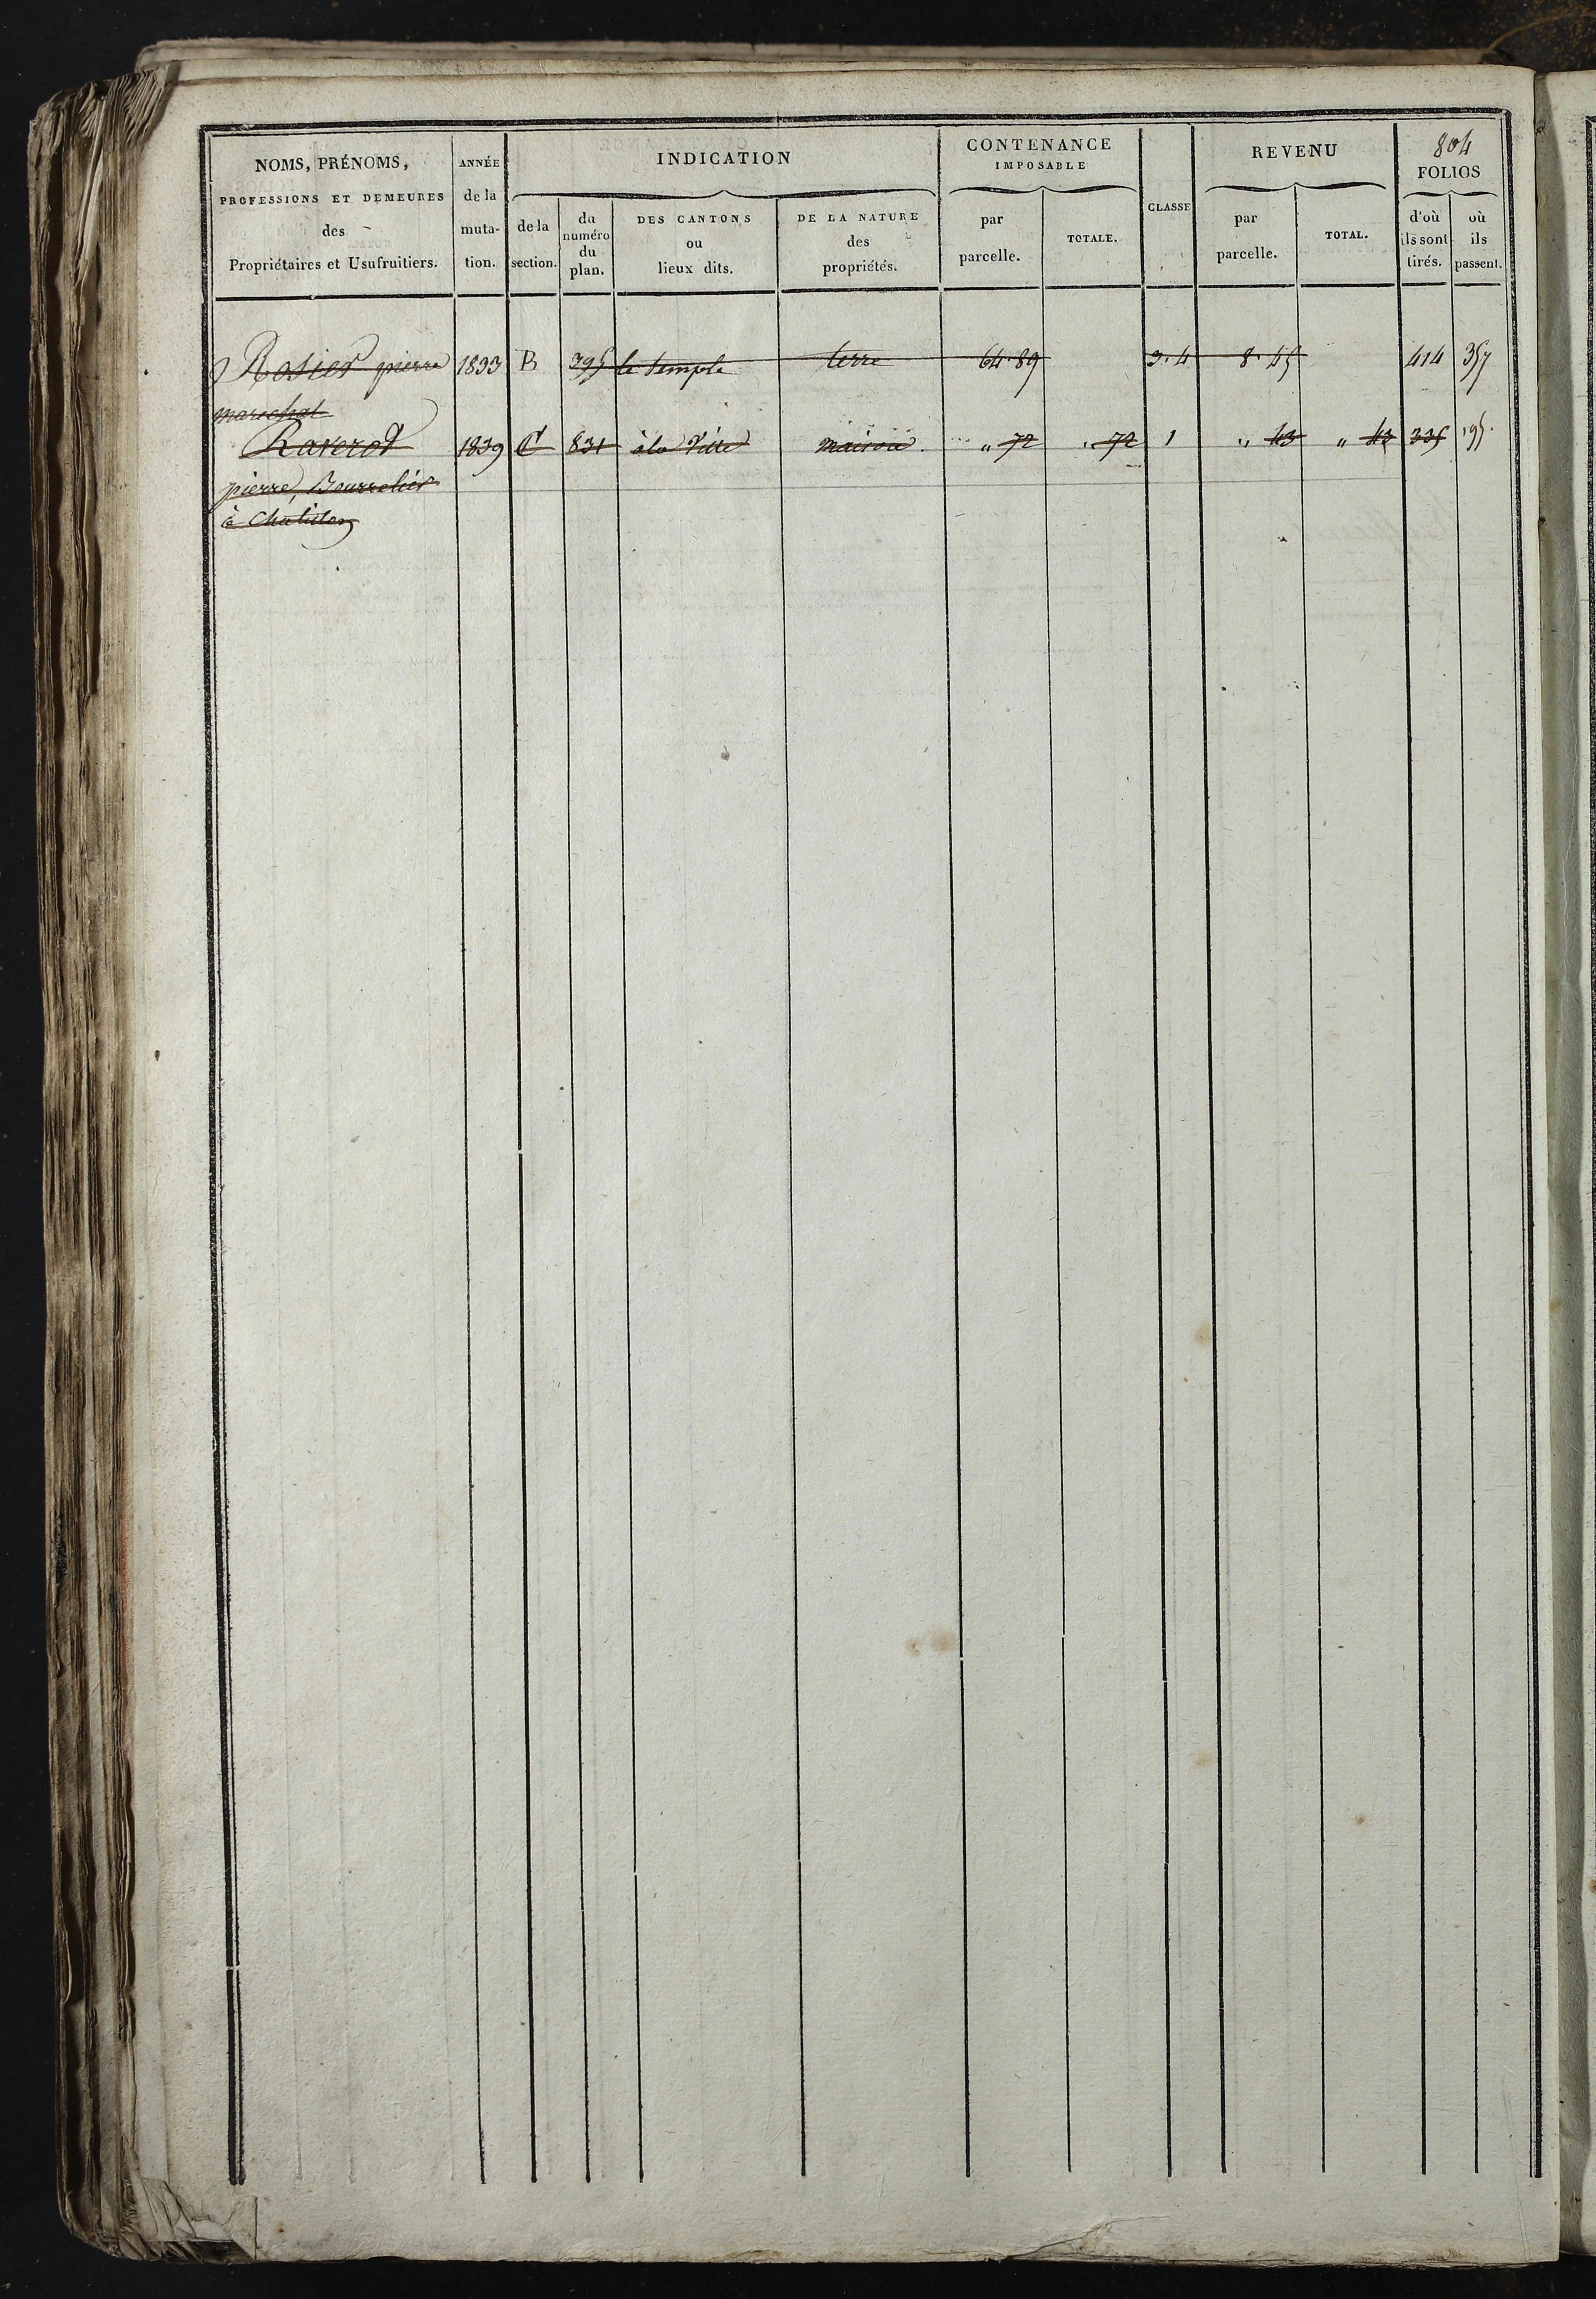 804
NOMS, PRÉNOMS,
PROFESSIONS ET DEMEURES
des
Propriétaires et Usufruitiers.
ANNÉE
de la
muta-
tion.
INDICATION
de la
section.
du
numéro
du
plan.
DES CANTONS
ou
lieux dits.
DE LA NATURE
des
propriétés.
CONTENANCE
IMPOSABLE
par
parcelle.
TOTALE.
CLASSE
REVENU
par
parcelle.
TOTAL.
FOLIOS
d'où
ils sont
tirés.
où
ils
passent.
Rosier pierre 1833 B 395 le temple terre 64.89 3.4 8.45 414 357
marechal
Raverot 1839 C 831 à la Ville maison. " 72 " 72 1 " 43 " 43 335
pierre, Bourrelier
à Chatillon